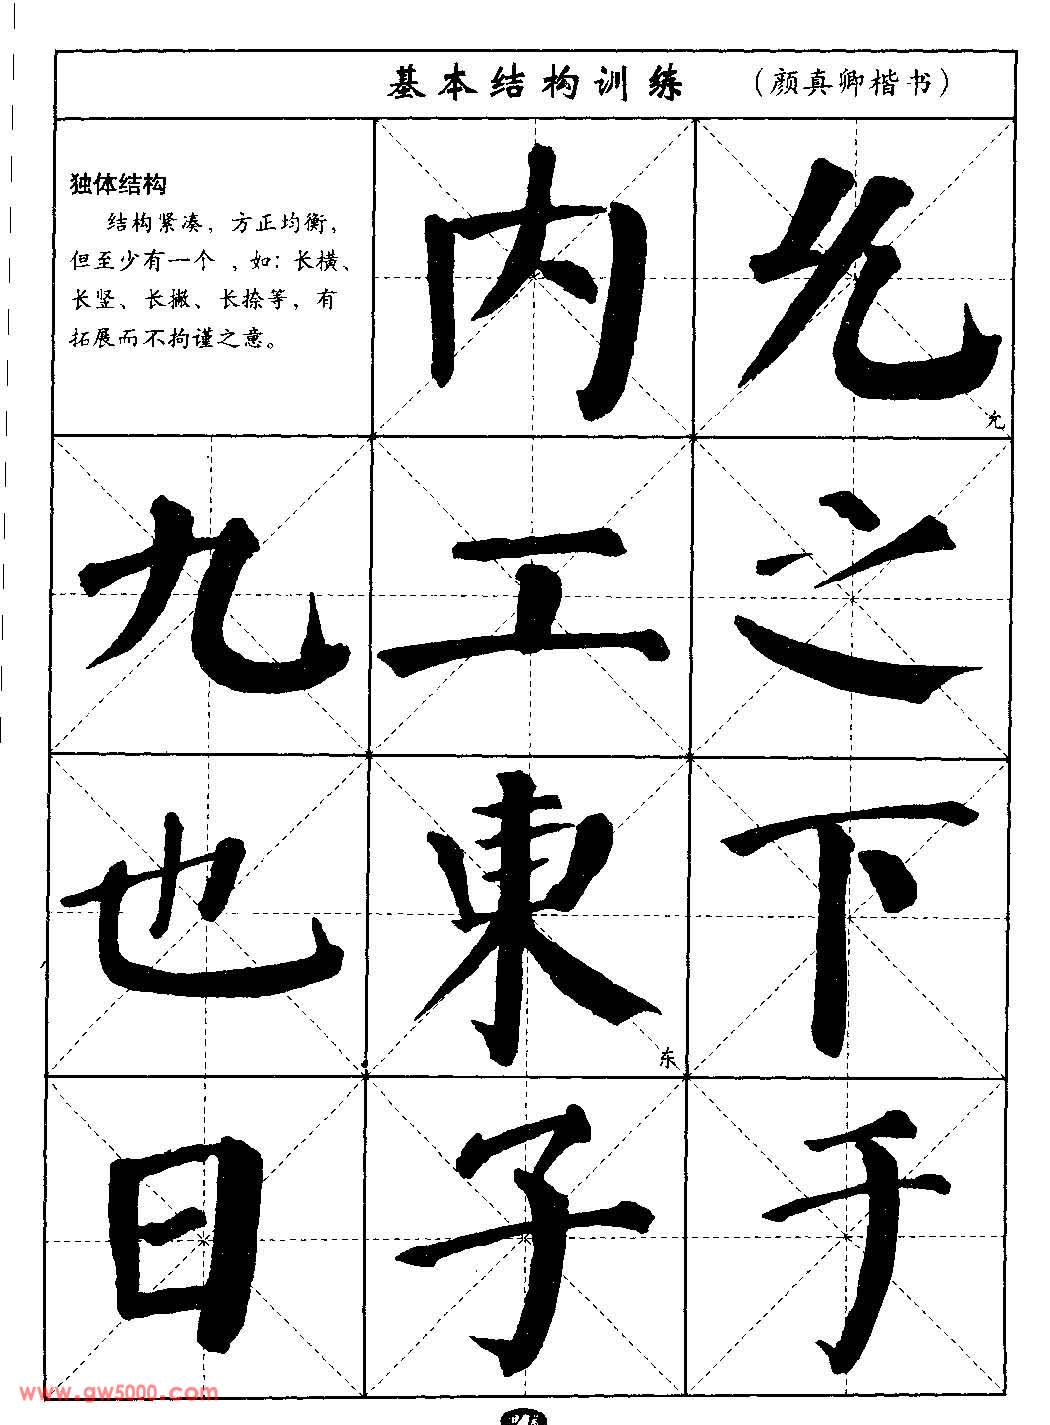 基本结构训练 （颜真卿楷书）
独体结构
结构紧凑，方正均衡，
但至少有一个 ，如：长横、
长竖、长撇、长捺等，有
拓展而不拘谨之意。
内 允
允
九 工 之
也 東 下
东
日 子 于
www.gw5000.com